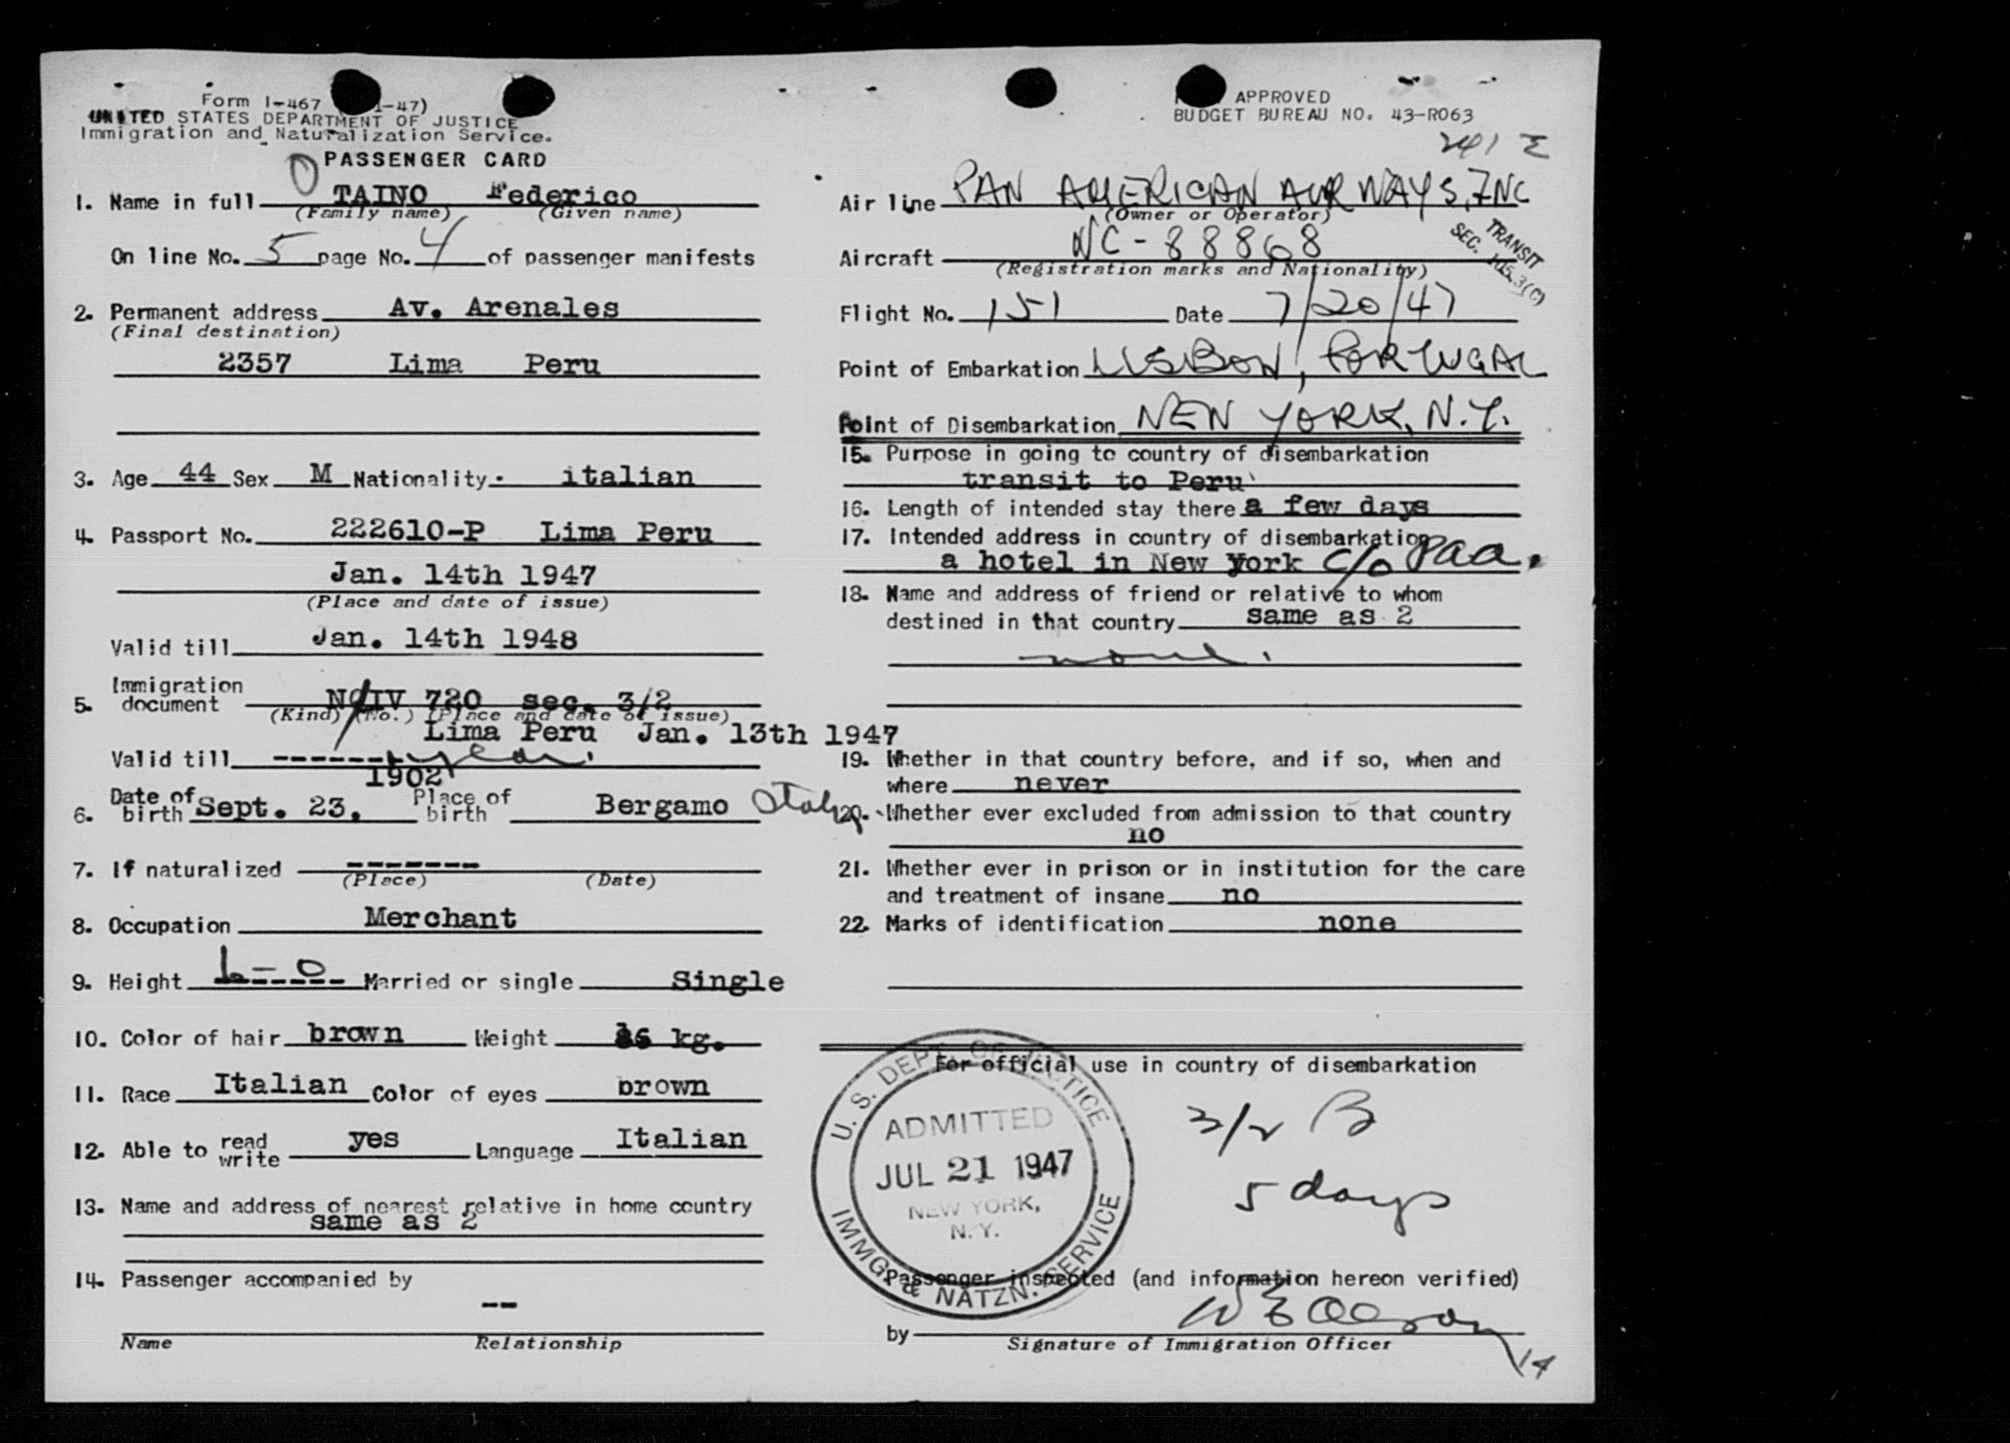 Form I-467 1-47)
UNITED STATES DEPARTMENT OF JUSTICE
Immigration and Naturalization Service.
PASSENGER CARD
1. Name in full TAINO Federico
(Family name) (Given name)
On line No. 5 page No. 4 of passenger manifests
2. Permanent address Av. Arenales
(Final destination)
2357 Lima Peru
3. Age 44 Sex M Nationality italian
4. Passport No. 222610-P Lima Peru
Jan. 14th 1947
(Place and date of issue)
Valid till Jan. 14th 1948
5. Immigration document NQIV 720 sec. 3/2
(Kind) (No.) (Place and date of issue)
Lima Peru Jan. 13th 1947
Valid till ------- 1 year.
1902
6. Date of birth Sept. 23, Place of birth Bergamo Italy
7. If naturalized -------
(Place) (Date)
8. Occupation Merchant
9. Height 6-0 Married or single Single
10. Color of hair brown Weight kg.
11. Race Italian Color of eyes brown
12. Able to read write yes Language Italian
13. Name and address of nearest relative in home country
same as 2
14. Passenger accompanied by
--
Name Relationship
APPROVED
BUDGET BUREAU NO. 43-R063
241 E
Air line PAN AMERICAN AIRWAYS, INC
(Owner or Operator)
TRANSIT
SEC. 105.3(C)
Aircraft NC-88868
(Registration marks and Nationality)
Flight No. 151 Date 7/20/47
Point of Embarkation LISBON, PORTUGAL
Point of Disembarkation NEW YORK, N.Y.
15. Purpose in going to country of disembarkation
transit to Peru
16. Length of intended stay there a few days
17. Intended address in country of disembarkation
a hotel in New York c/o PAA.
18. Name and address of friend or relative to whom
destined in that country same as 2
none.
19. Whether in that country before, and if so, when and
where never
20. Whether ever excluded from admission to that country
no
21. Whether ever in prison or in institution for the care
and treatment of insane no
22. Marks of identification none
For official use in country of disembarkation
U. S. DEPT. OF JUSTICE
ADMITTED
JUL 21 1947
NEW YORK,
N. Y.
IMMG. & NATZN. SERVICE
3/2 B
5 days
Passenger inspected (and information hereon verified)
by W E Olson
Signature of Immigration Officer
14